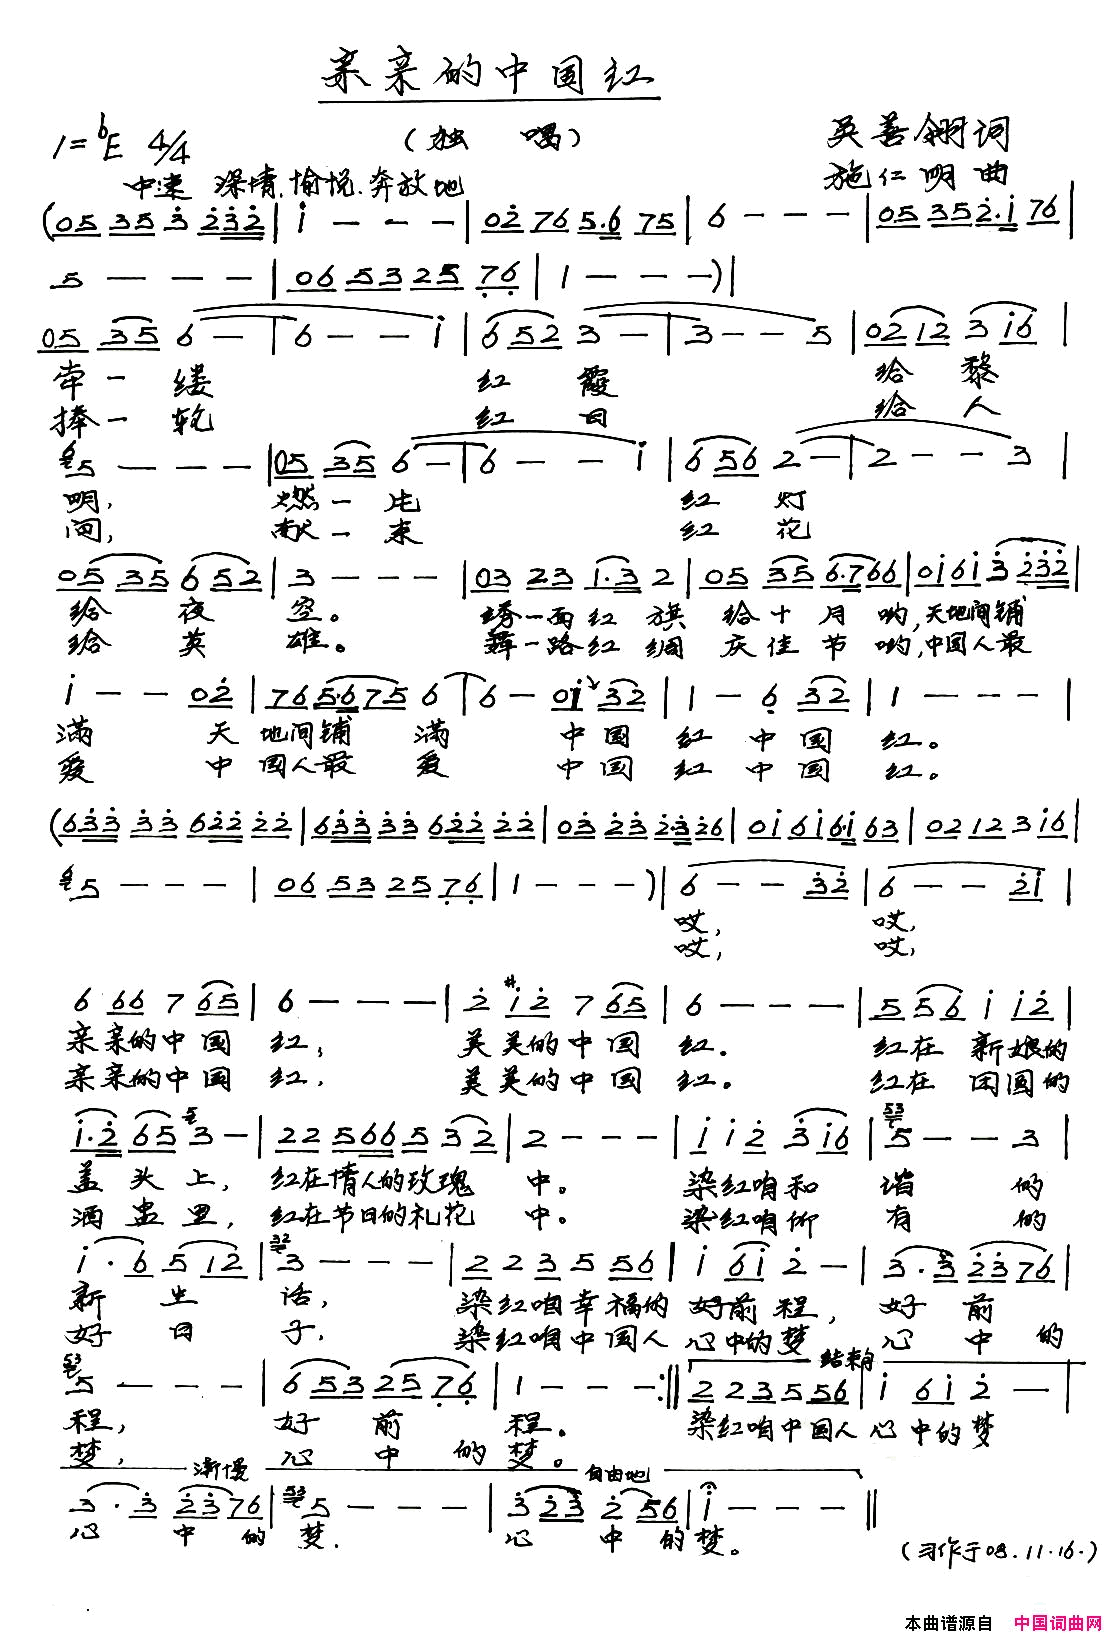 亲亲的中国红
（独 唱）
1=ᵇE 4/4
中速 深情、愉悦、奔放地
英善翎词
施仁明曲
(05 35 3 232 | i - - - | 02 76 5·6 75 | 6 - - - | 05 352·i 76 |
5 - - - | 06 53 25 76 | 1 - - - ) |
05 35 6 - | 6 - - i | 6 52 3 - | 3 - - 5 | 02 12 3 i6 |
牵一缕 红霞 给黎
捧一轮 红日 给人
5 - - - | 05 35 6 - | 6 - - i | 6 56 2 - | 2 - - 3 |
明， 燃一电 红灯
间， 献一束 红花
05 35 6 52 | 3 - - - | 03 23 i·3 2 | 05 35 6·7 66 | 0i 6i 3 232 |
给夜空。 绣一面红旗给十月哟，天地间铺
给英雄。 舞一路红绸庆佳节哟，中国人最
i - - 02 | 76 5·6 75 6 | 6 - 0i 32 | 1 - 6 32 | 1 - - - |
满 天地间铺满 中国红中国红。
爱 中国人最爱 中国红中国红。
(633 33 622 22 | 633 33 622 22 | 03 23 23 26 | 0i 6i 6·i 63 | 02 12 3 i6 |
5 - - - | 06 53 25 76 | 1 - - - ) | 6 - - 32 | 6 - - 2i |
哎， 哎，
哎， 哎，
6 66 7 65 | 6 - - - | 2 #i2 7 65 | 6 - - - | 5 56 i i2 |
亲亲的中国红， 美美的中国红。 红在新娘的
亲亲的中国红， 美美的中国红。 红在团圆的
i·2 65 3 - | 22 566 5 32 | 2 - - - | i i2 3 i6 | 5 - - 3 |
盖头上，红在情人的玫瑰中。 染红咱和谐的
酒盅里，红在节日的礼花中。 染红咱所有的
i·6 5 12 | 3 - - - | 2 23 5 56 | i 6i 2 - | 3·3 2376 |
新生活， 染红咱幸福的好前程，好前
好日子， 染红咱中国人心中的梦，心中的
结束句
5 - - - | 653 2576 | 1 - - - :‖ 2 23 5 56 | i 6i 2 - |
程， 好前程。 染红咱中国人心中的梦
梦， 心中的梦。
渐慢 自由地
3·3 2376 | 5 - - - | 3 23 2 56 | i - - - ‖
心中的梦． 心中的梦。
（习作于08.11.16.）
本曲谱源自 中国词曲网